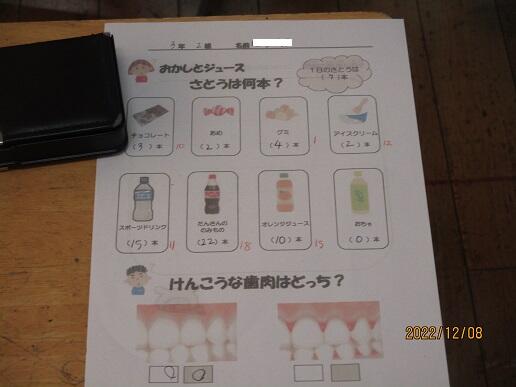 3年 2組 名前
おかしとジュース
さとうは何本？
1日のさとうは
(7)本
チョコレート
(3)本 10
あめ
(2)本
グミ
(4)本 1
アイスクリーム
(2)本 12
スポーツドリンク
(15)本 11
たんさんの
のみもの
(22)本 18
オレンジジュース
(10)本 15
おちゃ
(0)本
けんこうな歯肉はどっち？
2022/12/08